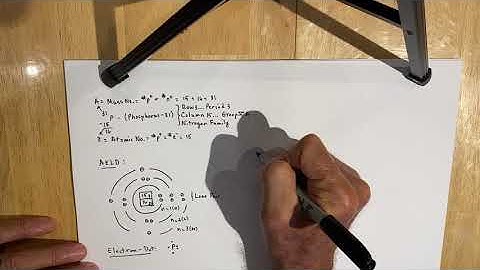 A = Mass No. = #p⁺ + #n° = 15 + 16 = 31
31
P - (Phosphorus-31)
-15
16
Rows... Period 3
Column 15... Group
Nitrogen Family
Z = Atomic No. = #p⁺ = #e⁻ = 15
AELD:
15p
Lone Pair
n=1(2)
n=2(8)
n=3(5)
Electron-Dot: P